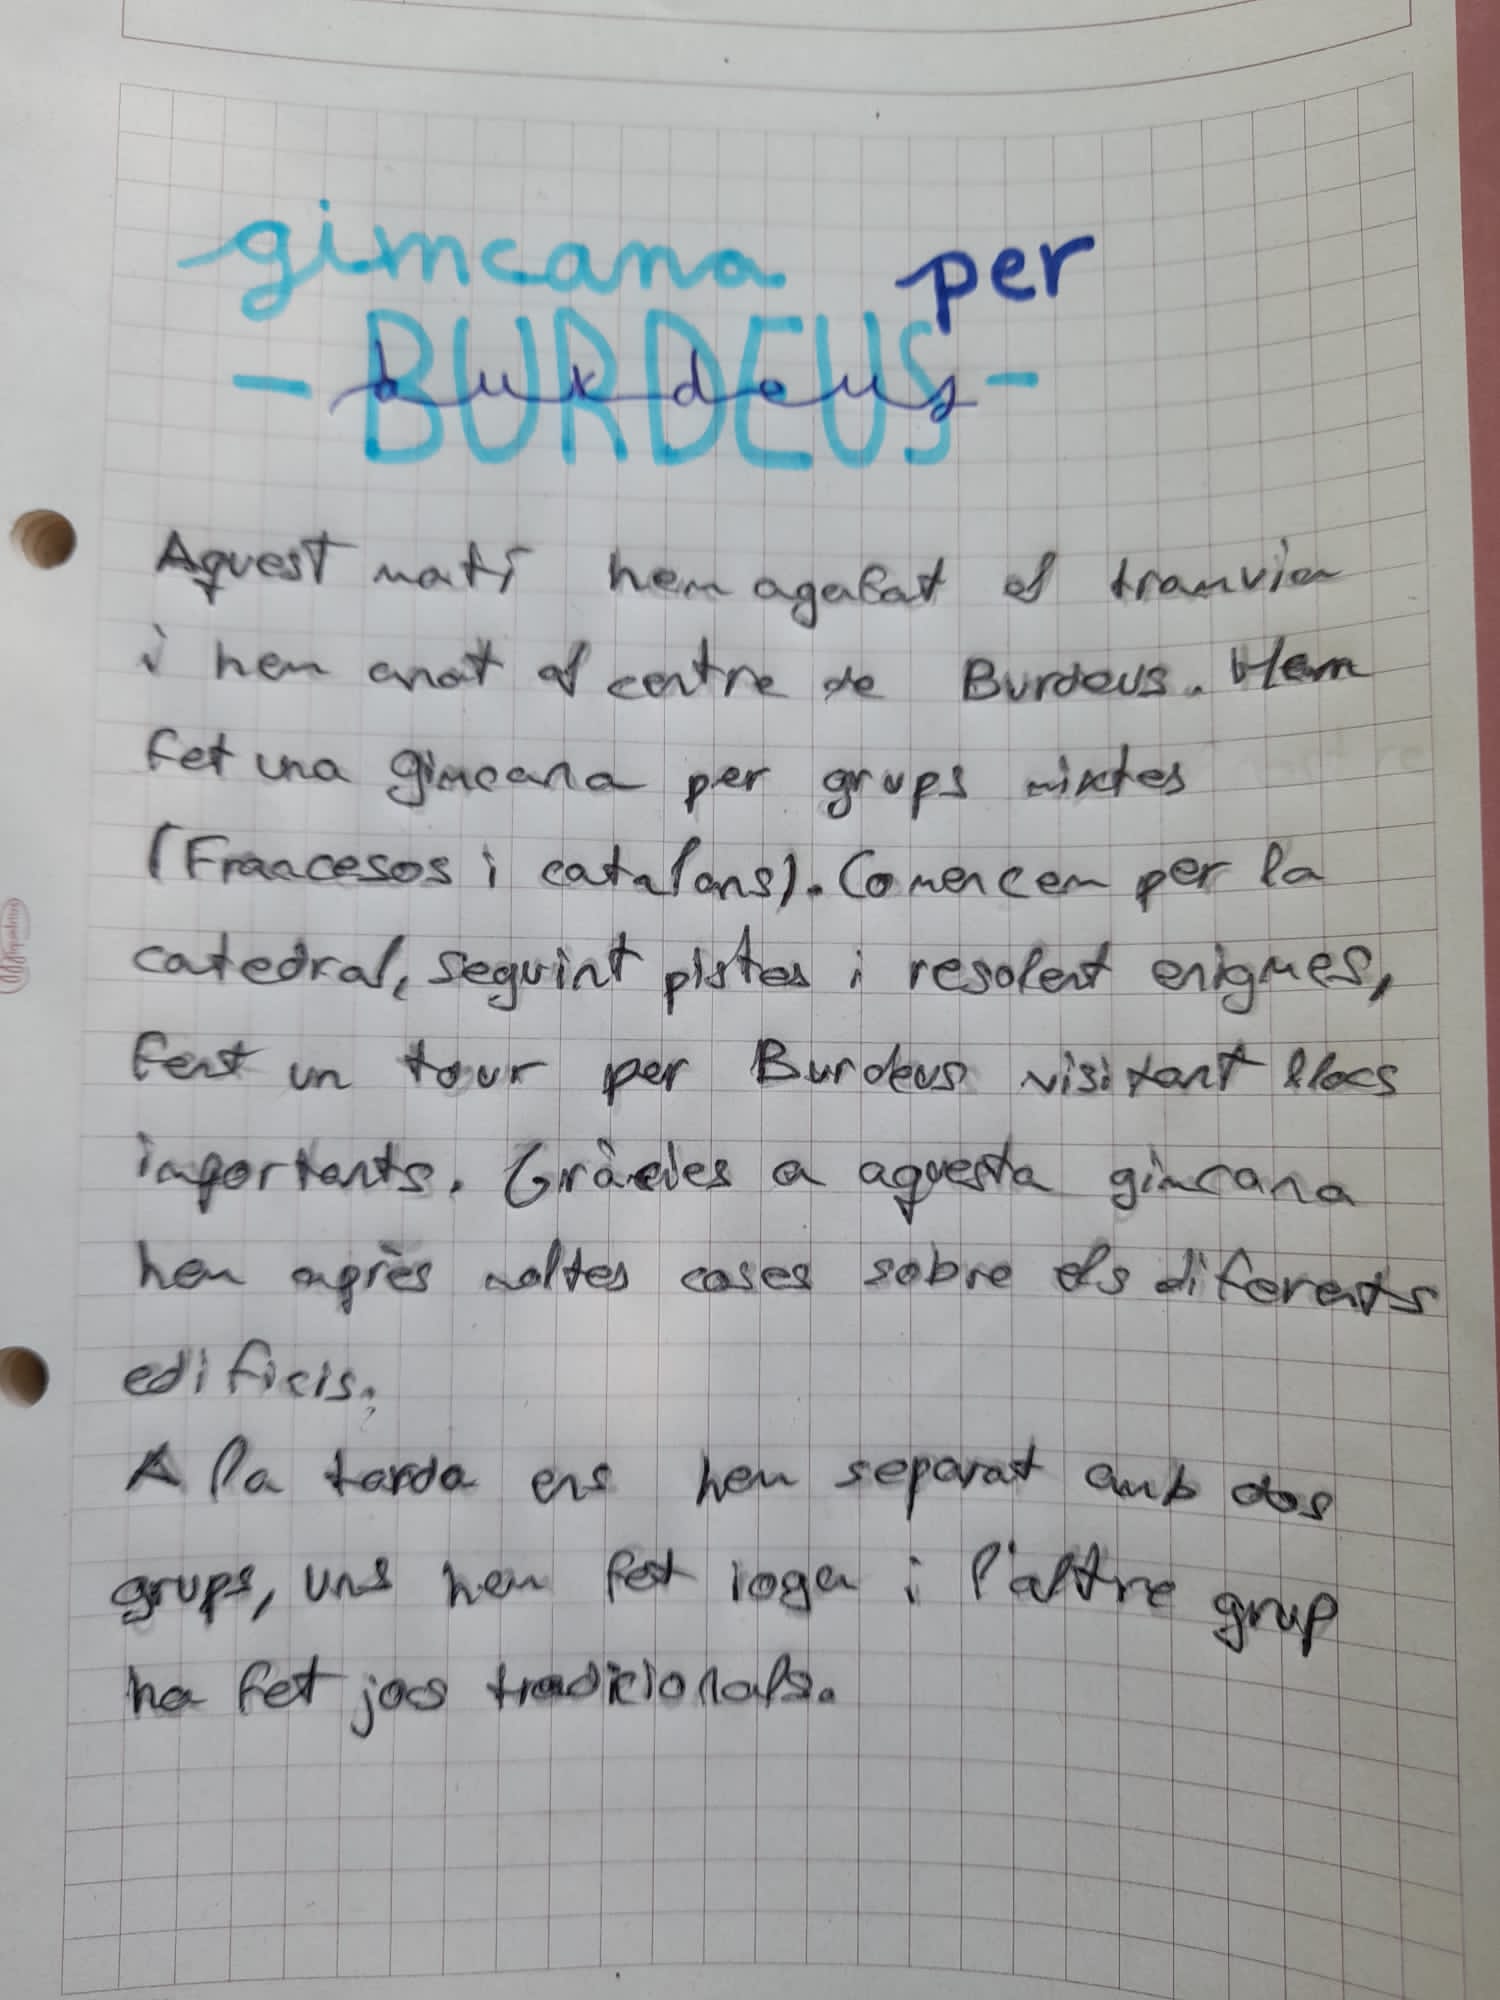 gimcana per
- BURDEUS -
burdeus
Aquest matí hem agafat el tramvia
i hem anat al centre de Burdeus. Hem
fet una gimcana per grups mixtes
(Francesos i catalans). Comencem per la
catedral, seguint pistes i resolent enigmes,
fent un tour per Burdeus visitant llocs
importants. Gràcies a aquesta gimcana
hem après moltes coses sobre els diferents
edificis.
A la tarda ens hem separat amb dos
grups, uns hem fet ioga i l'altre grup
ha fet jocs tradicionals.